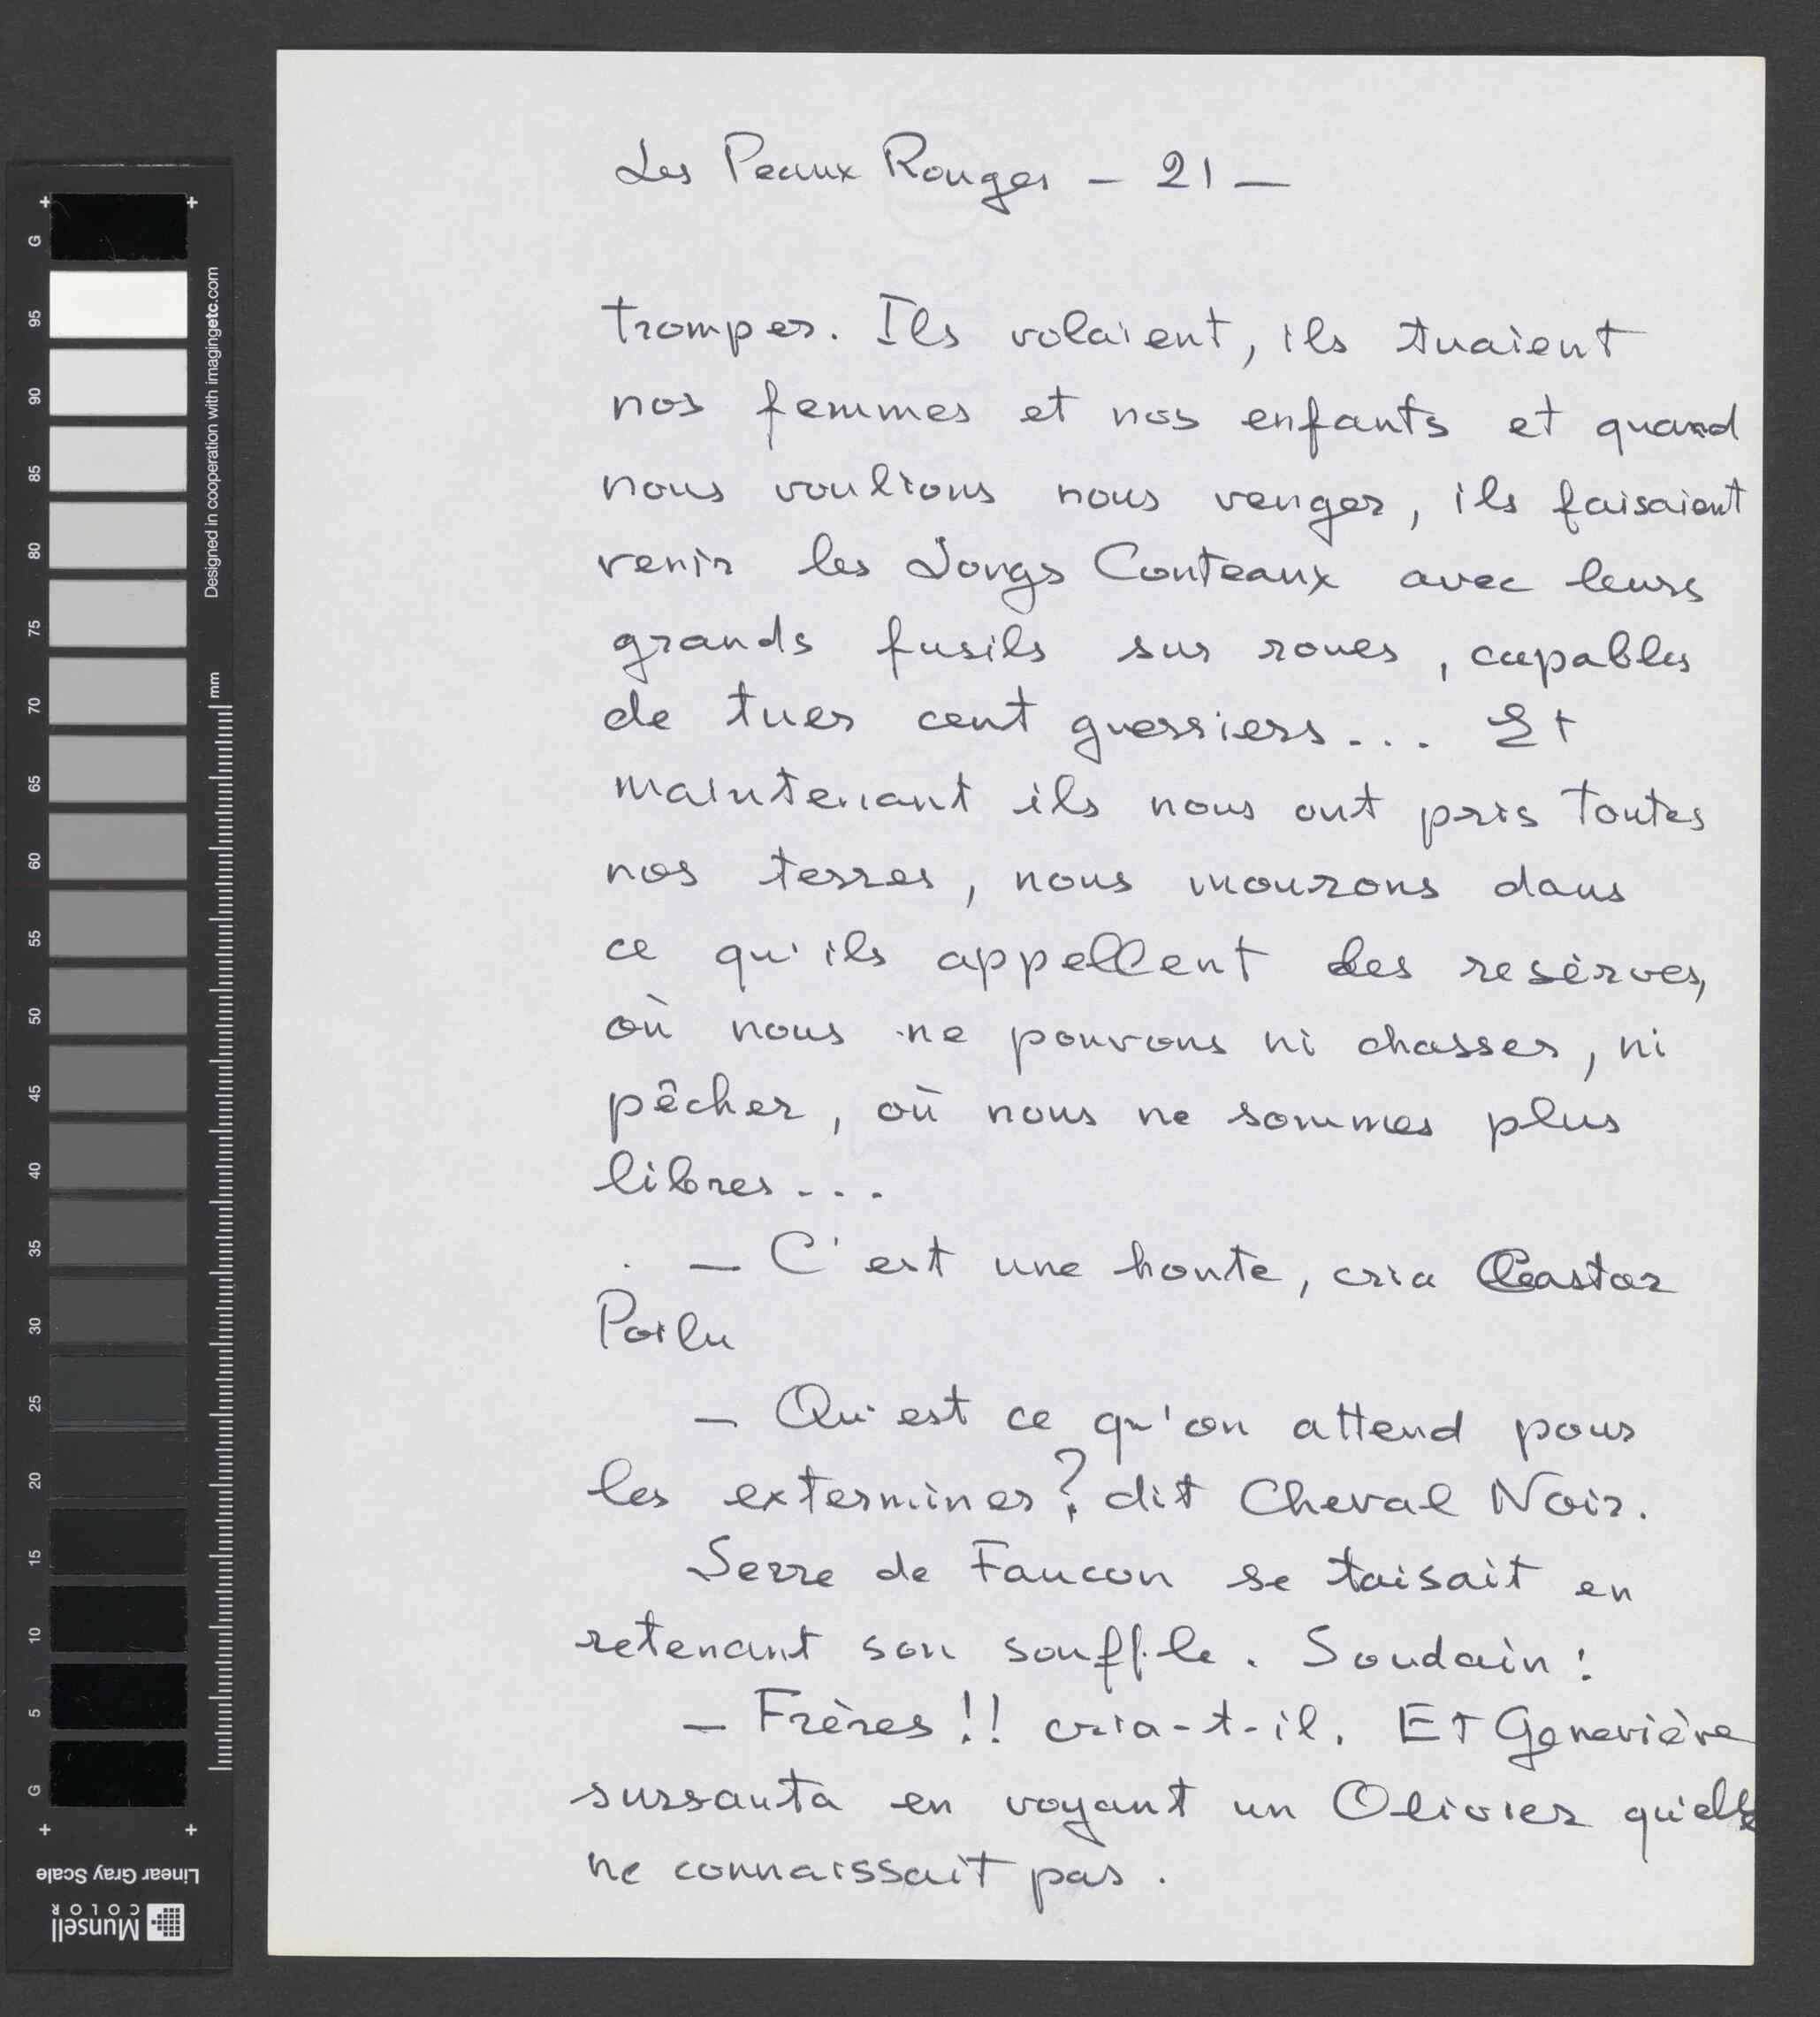 Les Peaux Rouges - 21 -
tromper. Ils volaient, ils tuaient
nos femmes et nos enfants et quand
nous voulions nous venger, ils faisaient
venir les Longs Couteaux avec leurs
grands fusils sur roues, capables
de tuer cent guerriers... Et
maintenant ils nous ont pris toutes
nos terres, nous mourons dans
ce qu'ils appellent des resérves,
où nous ne pouvons ni chasser, ni
pêcher, où nous ne sommes plus
libres...
- C'est une honte, cria Castor
Poilu
- Qu'est ce qu'on attend pour
les exterminer? dit Cheval Noir.
Serre de Faucon se taisait en
retenant son souffle. Soudain:
- Frères!! cria-t-il. Et Geneviève
sursauta en voyant un Olivier qu'elle
ne connaissait pas.
G 95 90 85 80 75 70 65 60 55 50 45 40 35 30 25 20 15 10 5 G
Designed in cooperation with imagingetc.com
mm
Linear Gray Scale
Munsell
COLOR